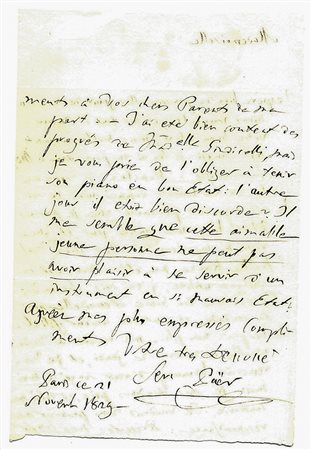 ments à vos chers Parents de ma
part — J'ai eté bien content des
progrés de elle mais
je vous prie de l'obliger à tenir
son piano en bon Etat: l'autre
jour il etoit bien discorde. Il
me semble que cette aimable
jeune personne ne peut pas
avoir plaisir à se servir d'un
instrument en si mauvais Etat.
Agréer mes plus empressés Compli
ments Votre tres Devoué
Serv. Päer
Paris ce 21
Novembr 1829